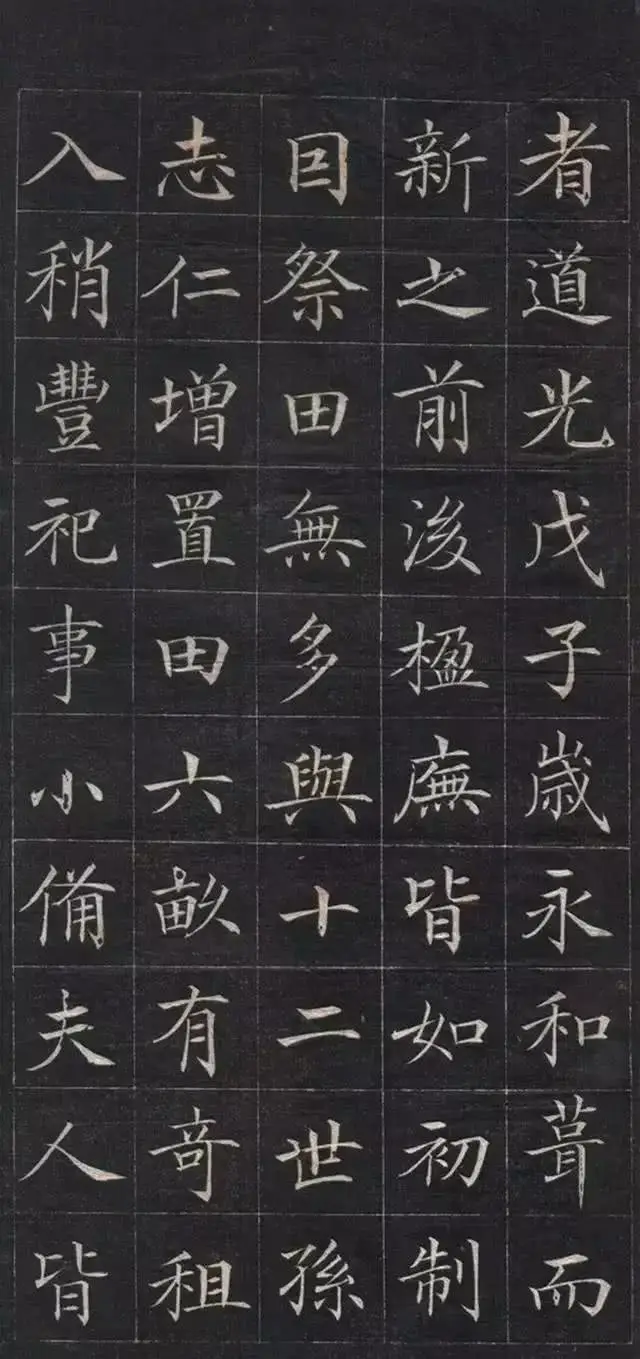 者道光戊子歲永和葺而
新之前後楹廡皆如初制
因祭田無多與十二世孫
志仁增置田六畝有奇租
入稍豐祀事小備夫人皆